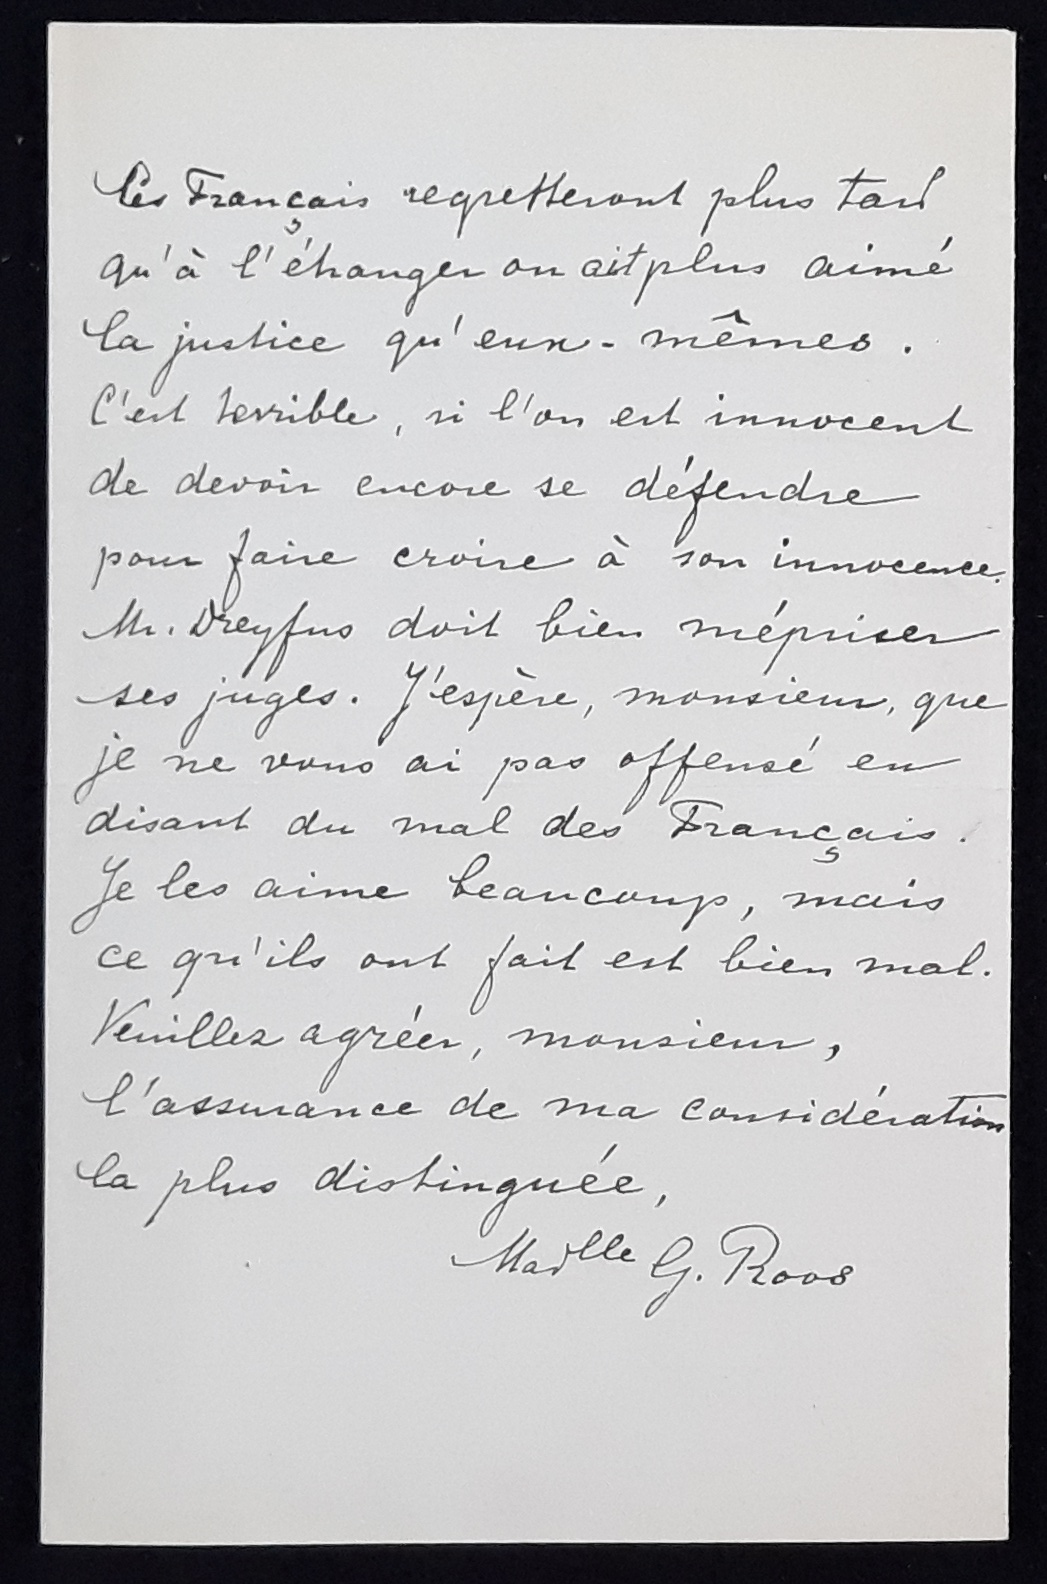 Les Français regretteront plus tard
qu'à l'éhanger on ait plus aimé
la justice qu'eux-mêmes.
C'est terrible, si l'on est innocent
de devoir encore se défendre
pour faire croire à son innocence.
Mr. Dreyfus doit bien mépriser
ses juges. J'espère, monsieur, que
je ne vous ai pas offensé en
disant du mal des Français.
Je les aime beaucoup, mais
ce qu'ils ont fait est bien mal.
Veuillez agréer, monsieur,
l'assurance de ma considération
la plus distinguée,
Madlle G. Roos